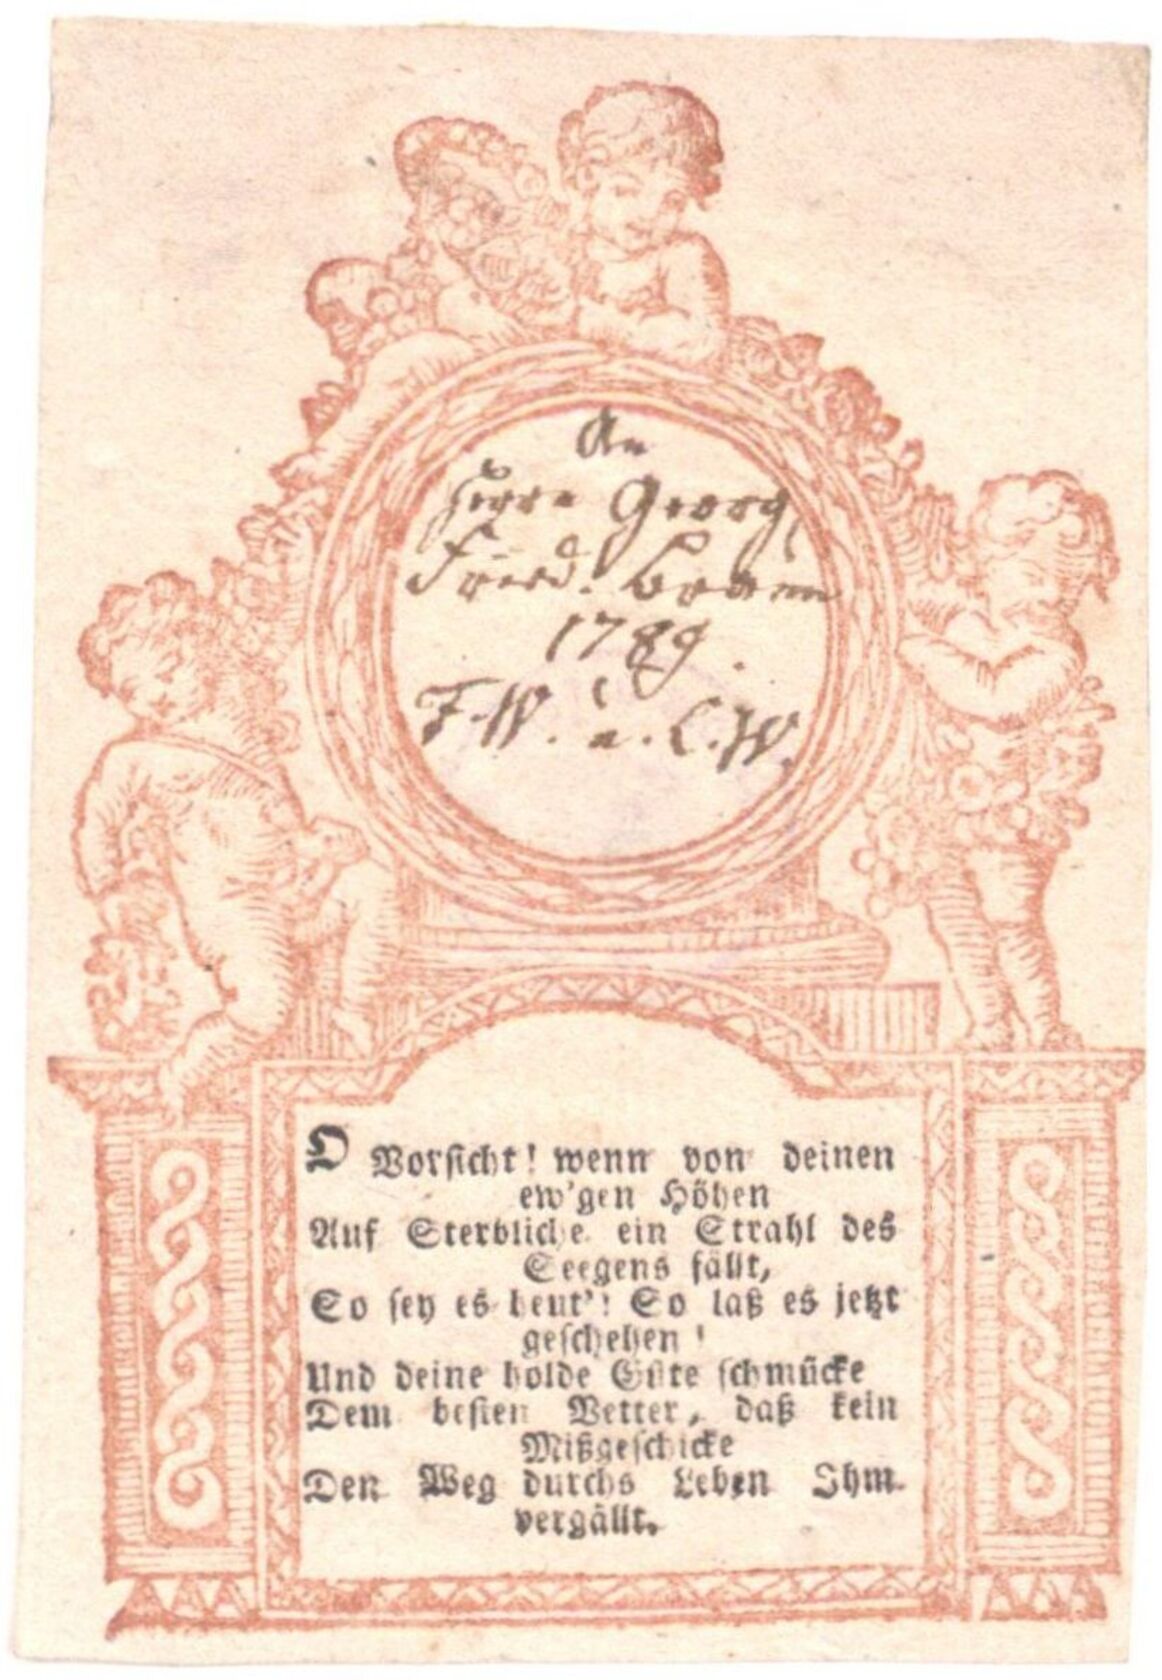 An
Herrn Georg
Fried.
1789.
F. W. u. L. W.
O Vorsicht! wenn von deinen
ew'gen Höhen
Auf Sterbliche ein Strahl des
Seegens fällt,
So sey es heut'! So laß es jetzt
geschehen!
Und deine holde Güte schmücke
Dem besten Vetter, daß kein
Mißgeschicke
Den Weg durchs Leben Ihm
vergällt.